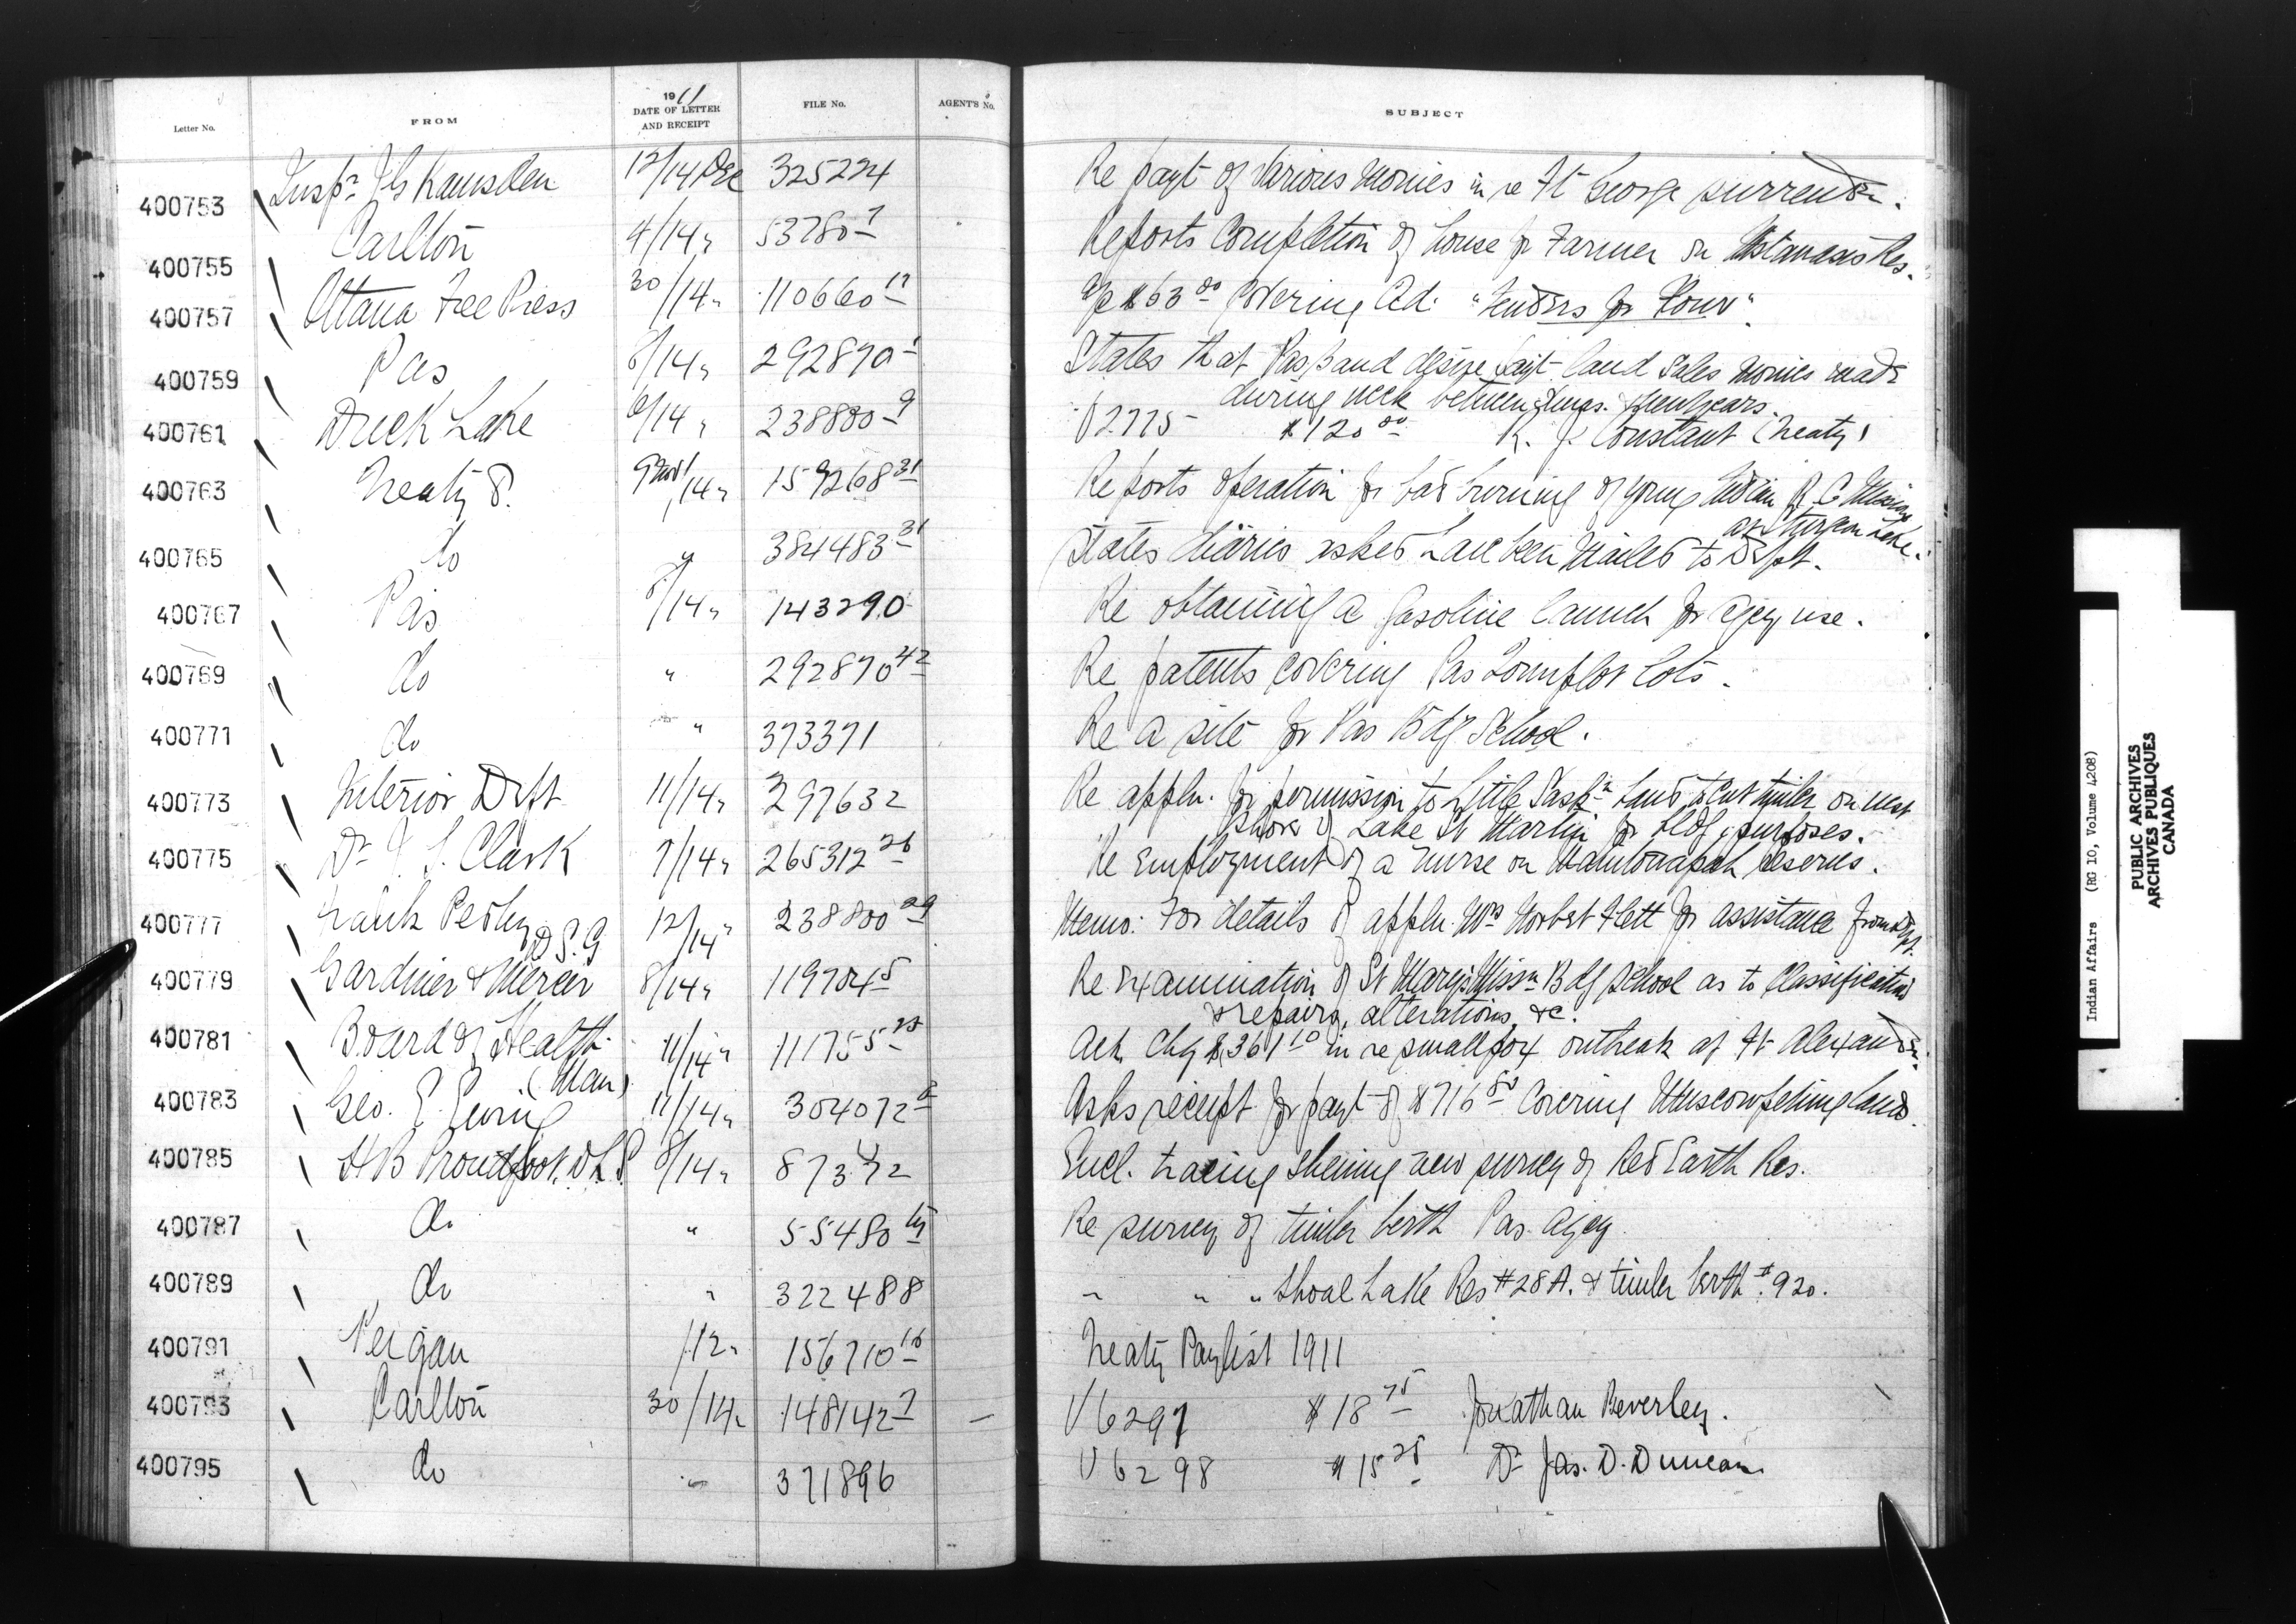 Letter No. FROM 1911 DATE OF LETTER AND RECEIPT FILE No. AGENT'S No. SUBJECT
400753 Inspr J G Ramsden 12/14 Dec 325224 Re payt of various monies in re Ft George surrender.
400755 Carlton 4/14 " 53780-7 Reports Completion of house for Farmer on Mistawasis Res.
400757 Ottawa Free Press 30/14 " 110660-17 a/c $63.00 Covering Ad. "Tenders for Flour".
400759 Pas 8/14 " 292870-1 States that Pas Band desire payt land sales monies made
during week between Xmas. & New Years.
400761 Duck Lake 6/14 " 238800-9 V2775 - $120.00 R. J. Constant (Treaty)
400763 Treaty 8. 9 Nov/14 " 159268-31 Reports operation for bad burning of young Indian R. C Mission
at Sturgeon Lake.
400765 do " 384483-31 States diaries asked have been mailed to Dept.
400767 Pas 8/14 " 143290 Re obtaining a gasoline launch for Agcy use.
400769 do " 292870-42 Re patents covering Pas Townplot lots.
400771 do " 373371 Re a site for Pas Bdg School.
400773 Interior Dept 11/14 " 297632 Re appln. for permission to Little Saskn Band to cut timber on west
shore of Lake St Martin for bldg purposes.
400775 Dr L. Clark 7/14 " 265312-26 Re Employment of a nurse on reserves.
400777 Frank Pedley D S. G 12/14 " 238800-29 Memo: For details of appln. Mrs Norbert Flett for assistance from Dept.
400779 Gardiner & Mercer 8/14 " 119704-5 Re examination of St Mary's Missn Bdg School as to Classification
& repairs, alterations, &c.
400781 Board of Health (Man) 11/14 " 111755-25 Ack Chq $361.10 in re smallpox outbreak at Ft Alexander.
400783 Geo. E. Ewing 11/14 " 304072 Asks receipt for payt of $716.80 Covering Muscowpetung lands.
400785 H B Proudfoot, D L S 8/14 " 87372 Encl. tracing showing new survey of Red Earth Res.
400787 do " 55480 Re survey of timber berth Pas Agcy
400789 do " 322488 " " " Shoal Lake Res #28A. & timber berth #920.
400791 Peigan /12 " 156710-16 Treaty Paylist 1911
400793 Carlton 30/14 " 148142-7 — V6297 $18.75 Jonathan Beverley.
400795 do " 371896 V6298 $15.25 Dr Jas. D. Duncan
Indian Affairs (RG 10, Volume 4208)
PUBLIC ARCHIVES
ARCHIVES PUBLIQUES
CANADA